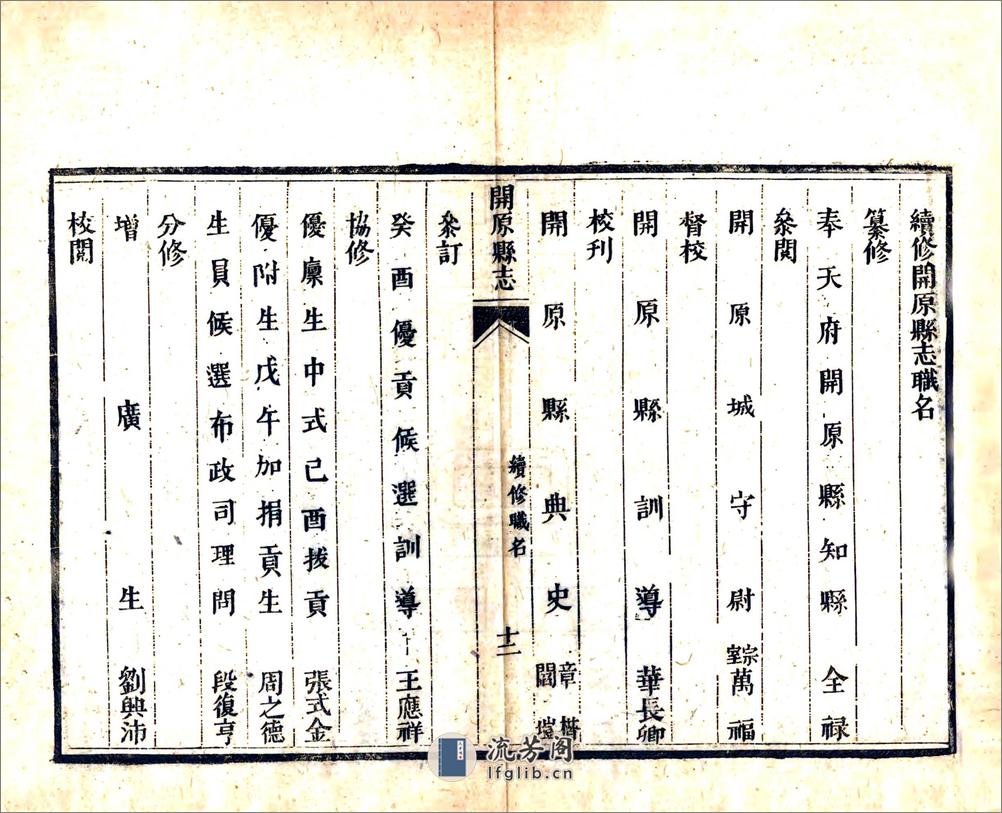 續修開原縣志職名
纂修
奉天府開原縣知縣 全禄
叅閱
開原城守尉 宗室萬福
督校
開原縣訓導 華長卿
校刊
開原縣典史 章楷 閻愷
開原縣志 續修職名 十二
叅訂
癸酉優貢候選訓導 王應祥
協修
優廩生中式己酉拔貢 張式金
優附生戊午加捐貢生 周之德
生員候選布政司理問 段復亨
分修
增廣生 劉興沛
校閱
流芳阁
lfglib.cn